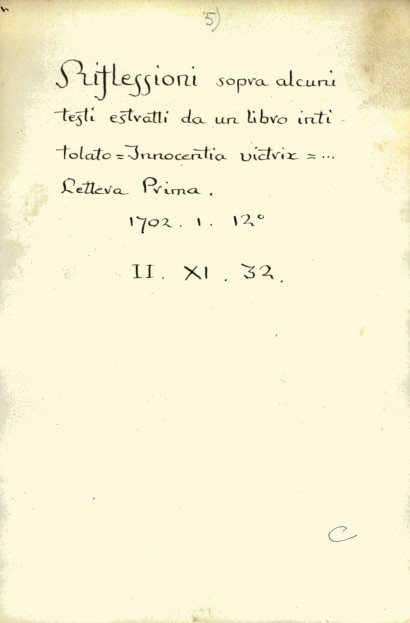 5)
Riflessioni sopra alcuni
testi estratti da un libro inti-
tolato = Innocentia victrix = ...
Lettera Prima.
1702. 1. 12°
II. XI. 32.
C